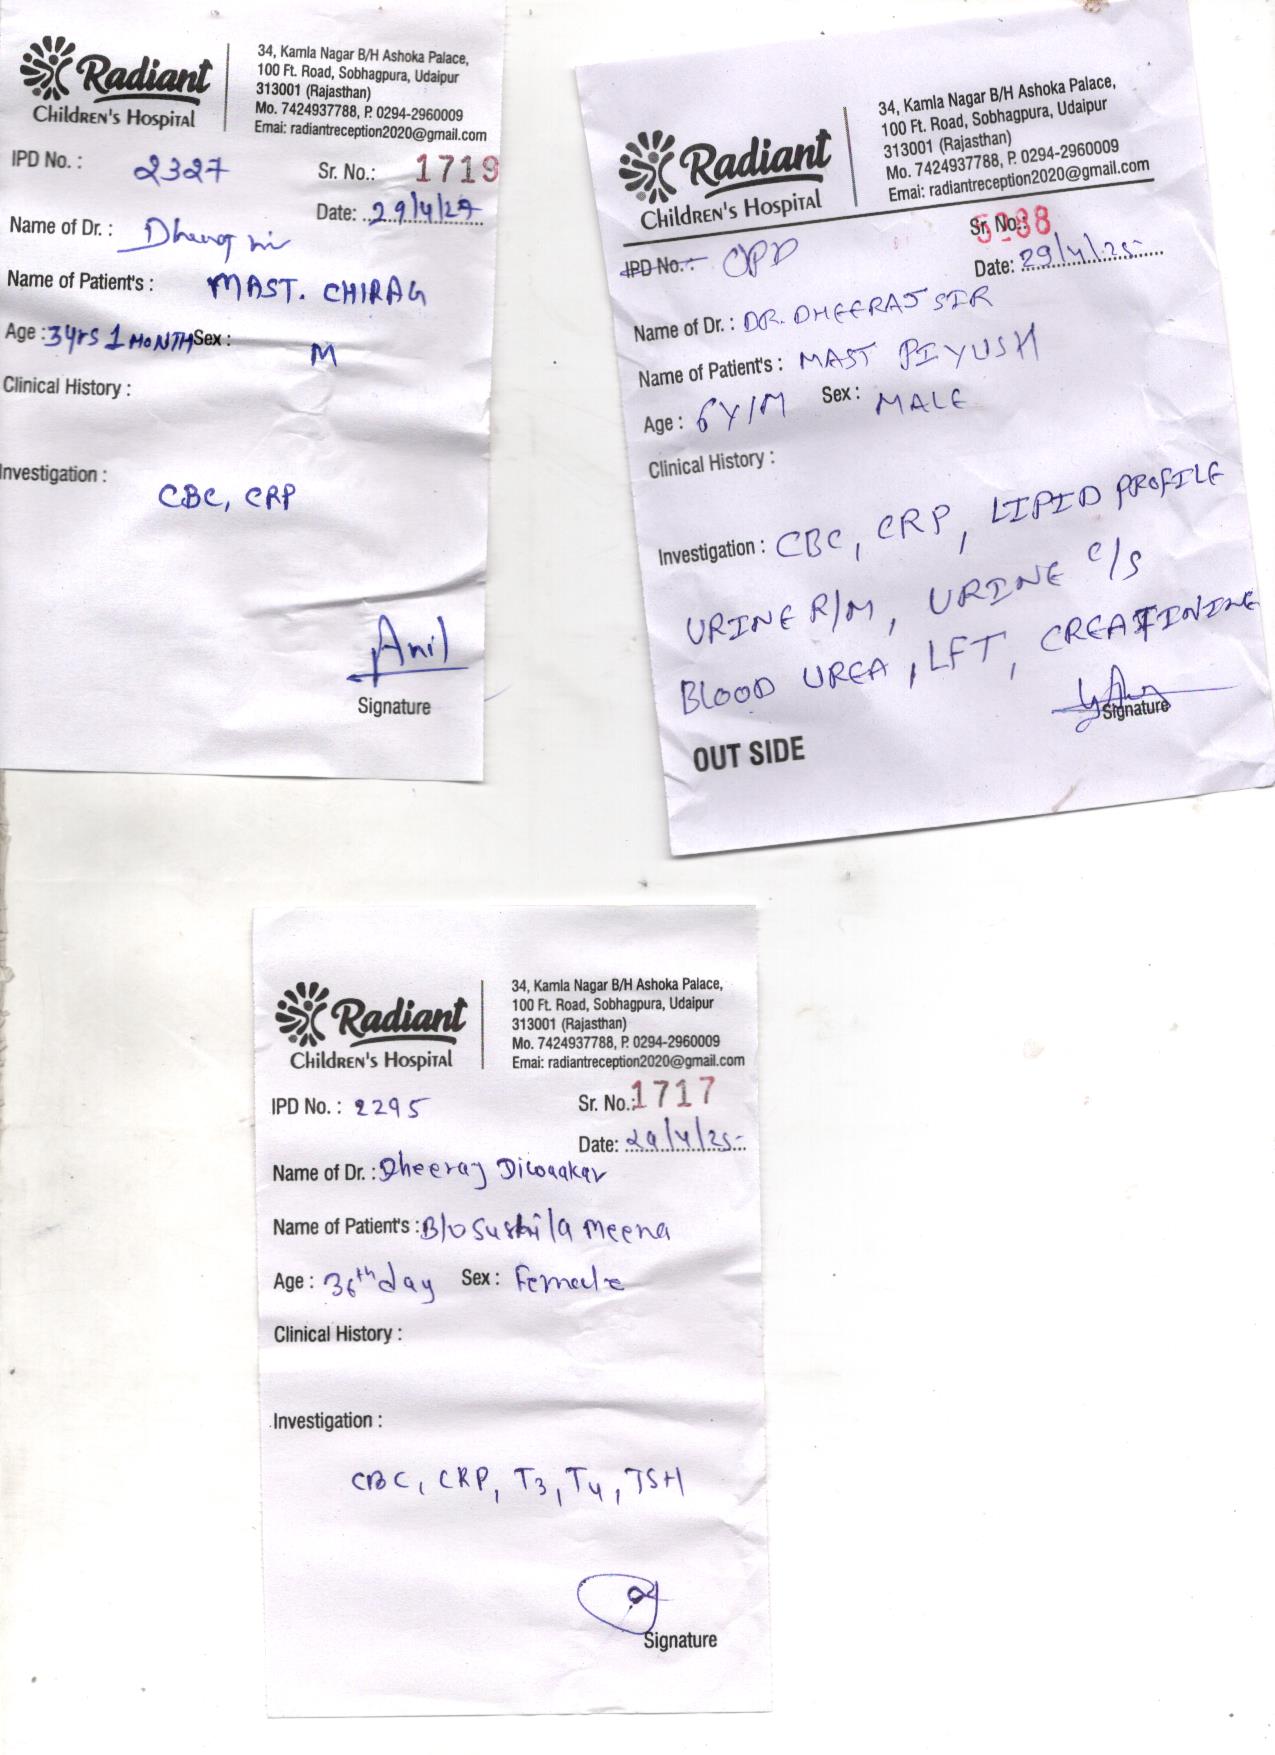 Radiant
Children's Hospital
34, Kamla Nagar B/H Ashoka Palace,
100 Ft. Road, Sobhagpura, Udaipur
313001 (Rajasthan)
Mo. 7424937788, P. 0294-2960009
Emai: radiantreception2020@gmail.com
IPD No. : 2327 Sr. No.: 1719
Date: 29/4/25
Name of Dr. :
Name of Patient's : MAST. CHIRAG
Age : 3yrs 1 MONTH Sex : M
Clinical History :
Investigation :
CBC, CRP
Anil
Signature
Radiant
Children's Hospital
34, Kamla Nagar B/H Ashoka Palace,
100 Ft. Road, Sobhagpura, Udaipur
313001 (Rajasthan)
Mo. 7424937788, P. 0294-2960009
Emai: radiantreception2020@gmail.com
IPD No. : OPD Sr. No.:
Date: 29/4/25
Name of Dr. : DR. DHEERAJ SIR
Name of Patient's : MAST PIYUSH
Age : 6Y/M Sex : MALE
Clinical History :
Investigation : CBC, CRP, LIPID PROFILE
URINE R/M, URINE C/S
BLOOD UREA, LFT, CREATININE
Signature
OUT SIDE
Radiant
Children's Hospital
34, Kamla Nagar B/H Ashoka Palace,
100 Ft. Road, Sobhagpura, Udaipur
313001 (Rajasthan)
Mo. 7424937788, P. 0294-2960009
Emai: radiantreception2020@gmail.com
IPD No. : 2295 Sr. No.: 1717
Date: 29/4/25
Name of Dr. : Dheeraj Diwaakar
Name of Patient's : B/O Sushila Meena
Age : 36th day Sex : Female
Clinical History :
Investigation :
CBC, CRP, T3, T4, TSH
Signature